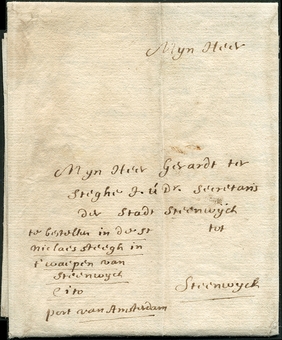 Myn Heer
Myn Heer Gerardt ter
Steghe J. ú Dr. Secretaris
der Stadt Steenwÿck
te bestellen in de st
tot
niclaes steegh in
t waepen van
Steenwyck
Cito
Steenwyck
port van Amsterdam